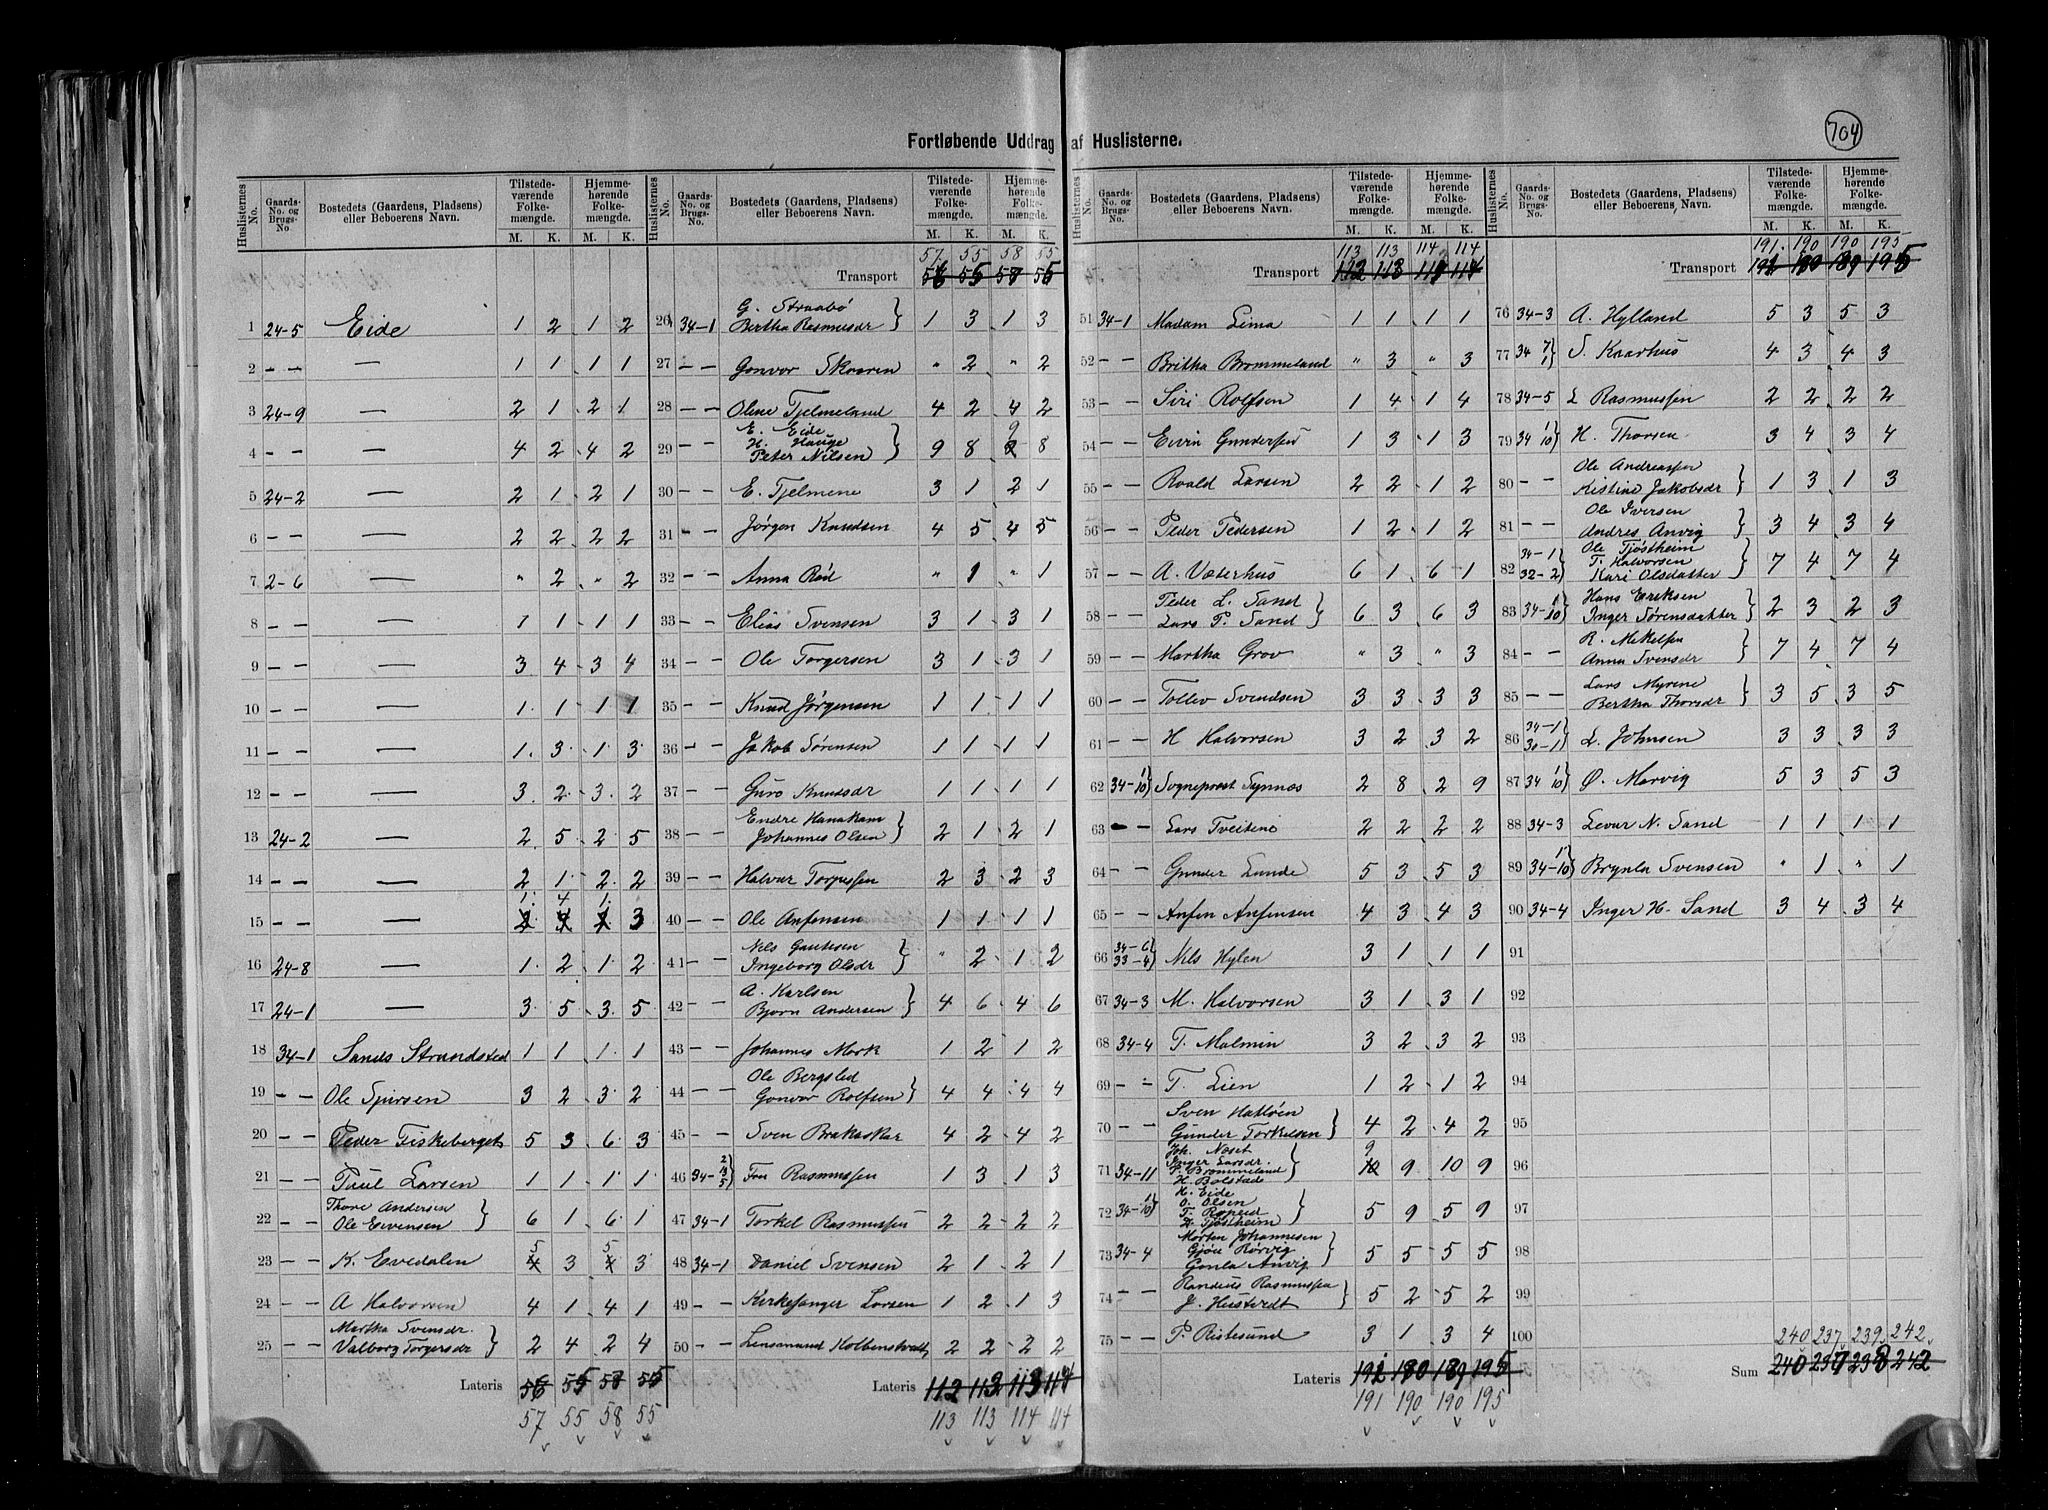 704
Fortløbende Uddrag af Huslisterne.
Huslisternes No. | Gaards-No. og Brugs-No. | Bostedets (Gaardens, Pladsens) eller Beboerens Navn. | Tilstedeværende Folkemængde. M. K. | Hjemmehørende Folkemængde. M. K.
1 24-5 Eide 1 2 1 2
2 - - — 1 1 1 1
3 24-9 — 2 1 2 1
4 - - — 4 2 4 2
5 24-2 — 2 1 2 1
6 - - — 2 2 2 2
7 2-6 — " 2 " 2
8 - - — 1 1 1 1
9 - - — 3 4 3 4
10 - - — 1 1 1 1
11 - - — 1 3 1 3
12 - - — 3 2 3 2
13 24-2 — 2 5 2 5
14 - - — 2 1 2 2
15 - - — 1 4 1 3
16 24-8 — 1 2 1 2
17 24-1 — 3 5 3 5
18 34-1 Sands Strandsted 1 1 1 1
19 - - Ole Spirsen 3 2 3 2
20 - - Peder Fiskeberget 5 3 6 3
21 - - Paul Larsen 1 1 1 1
22 - - Thore Andersen
Ole Eivensen } 6 1 6 1
23 - - K. Evedalen 5 3 5 3
24 - - A Halvorsen 4 1 4 1
25 - - Martha Svensdr.
Valborg Torgersdr } 2 4 2 4
Lateris 56 55 57 55
57 55 58 55
57 55 58 55
Transport 56 55 57 55
26 34-1 G. Straabø
Bertha Rasmusdr } 1 3 1 3
27 - - Gonvor Skaaren " 2 " 2
28 - - Oline Tjelmeland 4 2 4 2
29 - - E. Eide
H. Hauge
Peter Nilsen } 9 8 9 8
30 - - E. Tjelmene 3 1 2 1
31 - - Jørgen Knudsen 4 5 4 5
32 - - Anna Rød " 1 " 1
33 - - Elias Svensen 3 1 3 1
34 - - Ole Torgersen 3 1 3 1
35 - - Knud Jørgensen 1 1 1 1
36 - - Jakob Sørensen 1 1 1 1
37 - - Guro Knudsdr 1 1 1 1
38 - - Endre Hanakam
Johannes Olsen } 2 1 2 1
39 - - Halvar Torpussen 2 3 2 3
40 - - Ole Anfensen 1 1 1 1
41 - - Nils Gautesen
Ingeborg Olsdr } " 2 1 2
42 - - A. Karlsen
Bjørn Andersen } 4 6 4 6
43 - - Johannes Mork 1 2 1 2
44 - - Ole Bergsted
Gonvor Rolfsen } 4 4 4 4
45 - - Sven Brakaskar 4 2 4 2
46 34- 2 13 5 } Fru Rasmussen 1 3 1 3
47 34-1 Torkel Rasmussen 2 2 2 2
48 34-1 Daniel Svensen 2 1 2 1
49 - - Kirkesanger Larsen 1 2 1 3
50 - - Lensmand Kolbenstvedt 2 2 2 2
Lateris 112 113 113 114
113 113 114 114
113 113 114 114
Transport 112 113 113 114
51 34-1 Madam Lima 1 1 1 1
52 - - Britha Brommeland " 3 " 3
53 - - Siri Rolfsen 1 4 1 4
54 - - Eivin Gundersen 1 3 1 3
55 - - Roald Larsen 2 2 1 2
56 - - Peder Pedersen 1 2 1 2
57 - - A. Væterhus 6 1 6 1
58 - - Peder L. Sand
Lars P. Sand } 6 3 6 3
59 - - Martha Grov " 3 " 3
60 - - Tollev Svendsen 3 3 3 3
61 - - H Halvorsen 3 2 3 2
62 34- 1 10 } Sogneprest Synnæs 2 8 2 9
63 - - Lars Tveiteno 2 2 2 2
64 - - Gunder Lunde 5 3 5 3
65 - - Anfen Anfensen 4 3 4 3
66 34-6 33-4 } Nils Hylen 3 1 1 1
67 34-3 M. Halvorsen 3 1 3 1
68 34-4 T. Malmin 3 2 3 2
69 - - T. Lien 1 2 1 2
70 - - Sven Hatløen
Gunder Torkelsen } 4 2 4 2
71 34-11 Joh. Næset
Inger Larsdr.
P. Brommeland
H. Bolstad } 9 9 10 9
72 34- 1 10 } H. Eide
O. Olsen
T. Røneid
D. Tjøstheim } 5 9 5 9
73 34-4 Morten Johannesen
Gjøe Rørvig
Gonla Anvig } 5 5 5 5
74 - - Randeus Rasmussen
J. Hustvedt } 5 2 5 2
75 - - P. Ristesund 3 1 3 4
Lateris 192 190 189 195
191 190 190 195
191 190 190 195
Transport 192 190 189 195
76 34-3 A. Hylland 5 3 5 3
77 34 7 1 } S. Kaarhus 4 3 4 3
78 34-5 L Rasmussen 2 2 2 2
79 34 1 10 } H. Thorsen 3 4 3 4
80 - - Ole Andreassen
Kistine Jakobsdr } 1 3 1 3
81 - - Ole Iversen
Andres Anvig } 3 4 3 4
82 34-1 32-2 } Ole Tjøstheim
T. Halvorsen
Kari Olsdatter } 7 4 7 4
83 34- 1 10 } Hans Eriksen
Inger Sørensdatter } 2 3 2 3
84 - - R. Mekelsen
Anna Svensdr } 7 4 7 4
85 - - Lars Myrene
Bertha Thorsdr } 3 5 3 5
86 34-1 30-1 } L. Johnsen 3 3 3 3
87 34 1 10 } Ø. Marvig 5 3 5 3
88 34-3 Levar N. Sand 1 1 1 1
89 34- 1 10 } Brynla Svensen " 1 " 1
90 34-4 Inger H. Sand 3 4 3 4
91
92
93
94
95
96
97
98
99
100 240 237 239 242
Sum 240 237 238 242